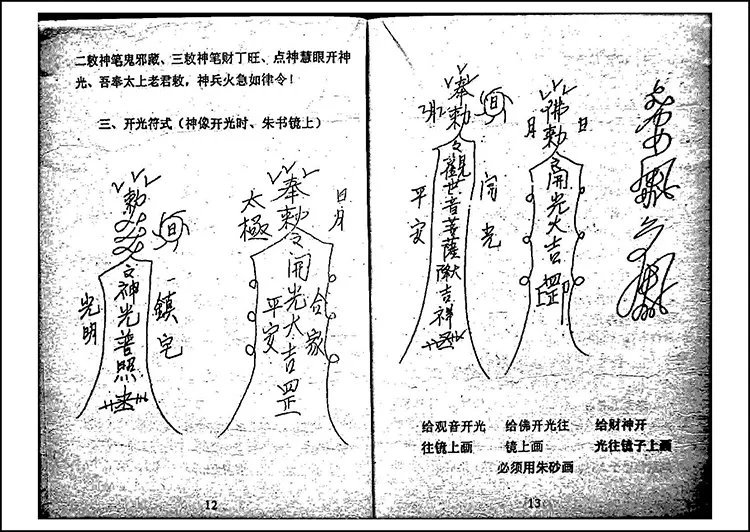 二敕神笔鬼邪藏、三敕神笔财丁旺、点神慧眼开神
光、吾奉太上老君敕，神兵火急如律令！
三、开光符式（神像开光时、朱书镜上）
敕
令神光普照
光明
一鎮宅
奉敕令開光大吉罡
太極
日月
平安
合家
12
奉敕令觀世音菩薩
吉祥
平安
開光
佛敕令開光大吉罡
月
日
给观音开光
往镜上画
给佛开光往
镜上画
给财神开
光往镜子上画
必须用朱砂画
13